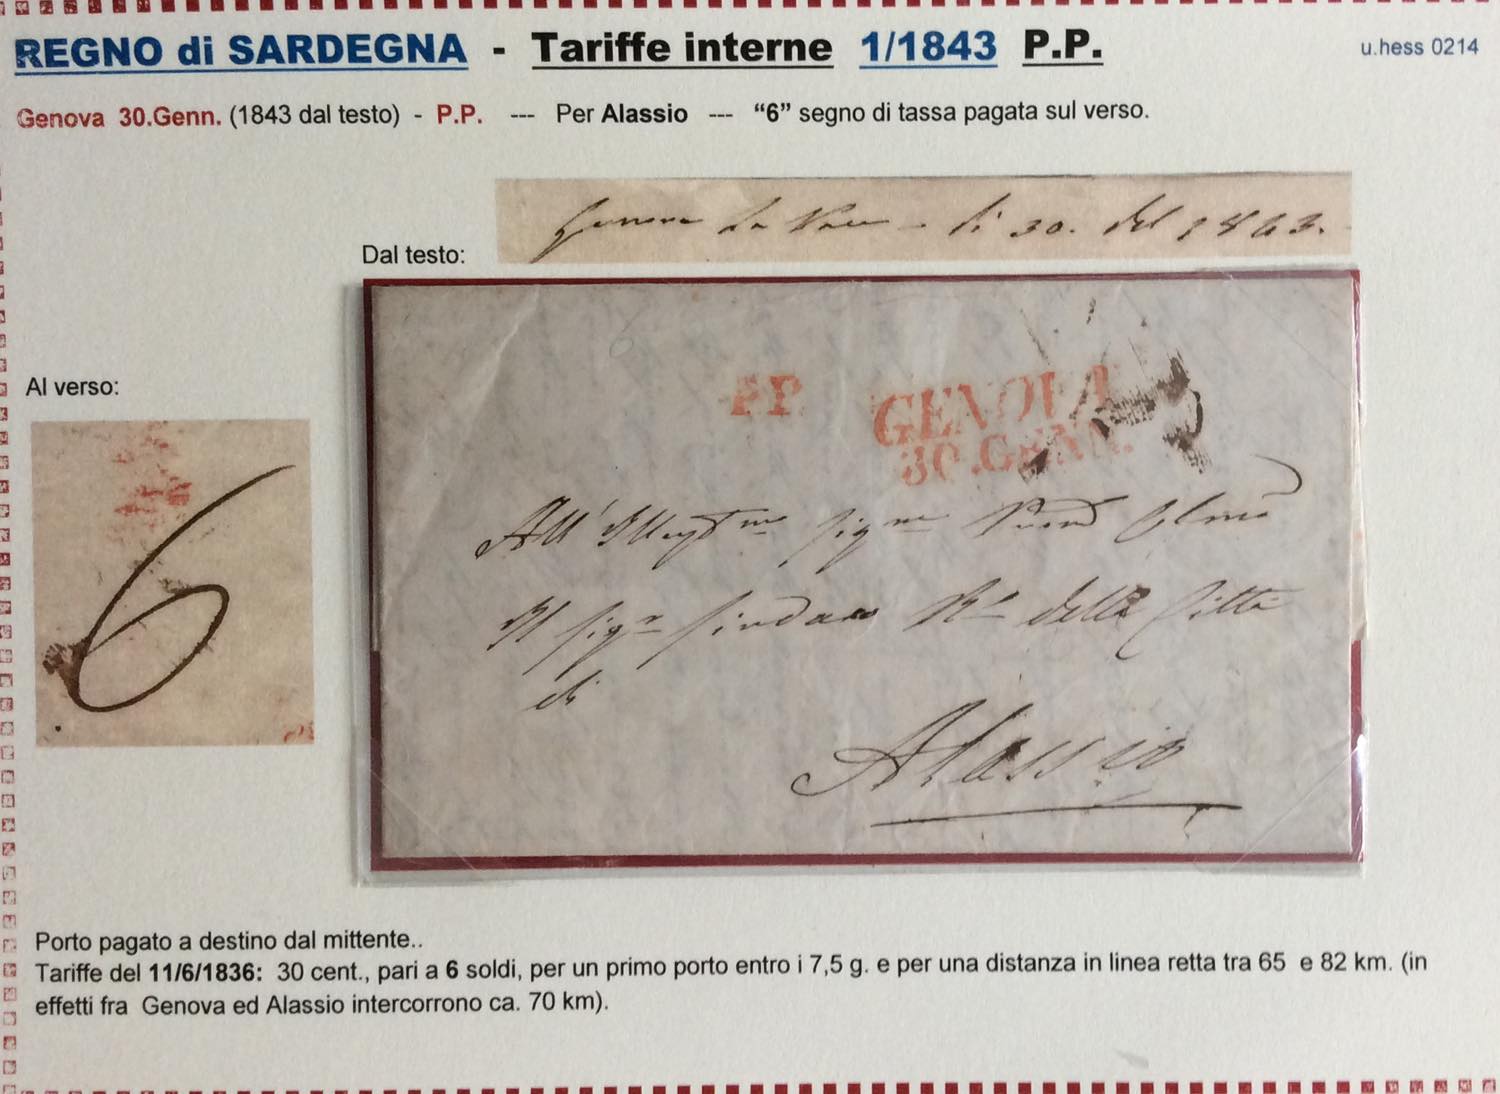 REGNO di SARDEGNA - Tariffe interne 1/1843 P.P.
u.hess 0214
Genova 30.Genn. (1843 dal testo) - P.P. --- Per Alassio --- “6” segno di tassa pagata sul verso.
Genova La Nave - li 30. del 1843.
Dal testo:
Al verso:
6
P.P.
GENOVA
30.GENN.
All' Illust.mo Sig.re
Il Sig.r Sindaco R.o della Città
di
Alassio
Porto pagato a destino dal mittente..
Tariffe del 11/6/1836: 30 cent., pari a 6 soldi, per un primo porto entro i 7,5 g. e per una distanza in linea retta tra 65 e 82 km. (in
effetti fra Genova ed Alassio intercorrono ca. 70 km).